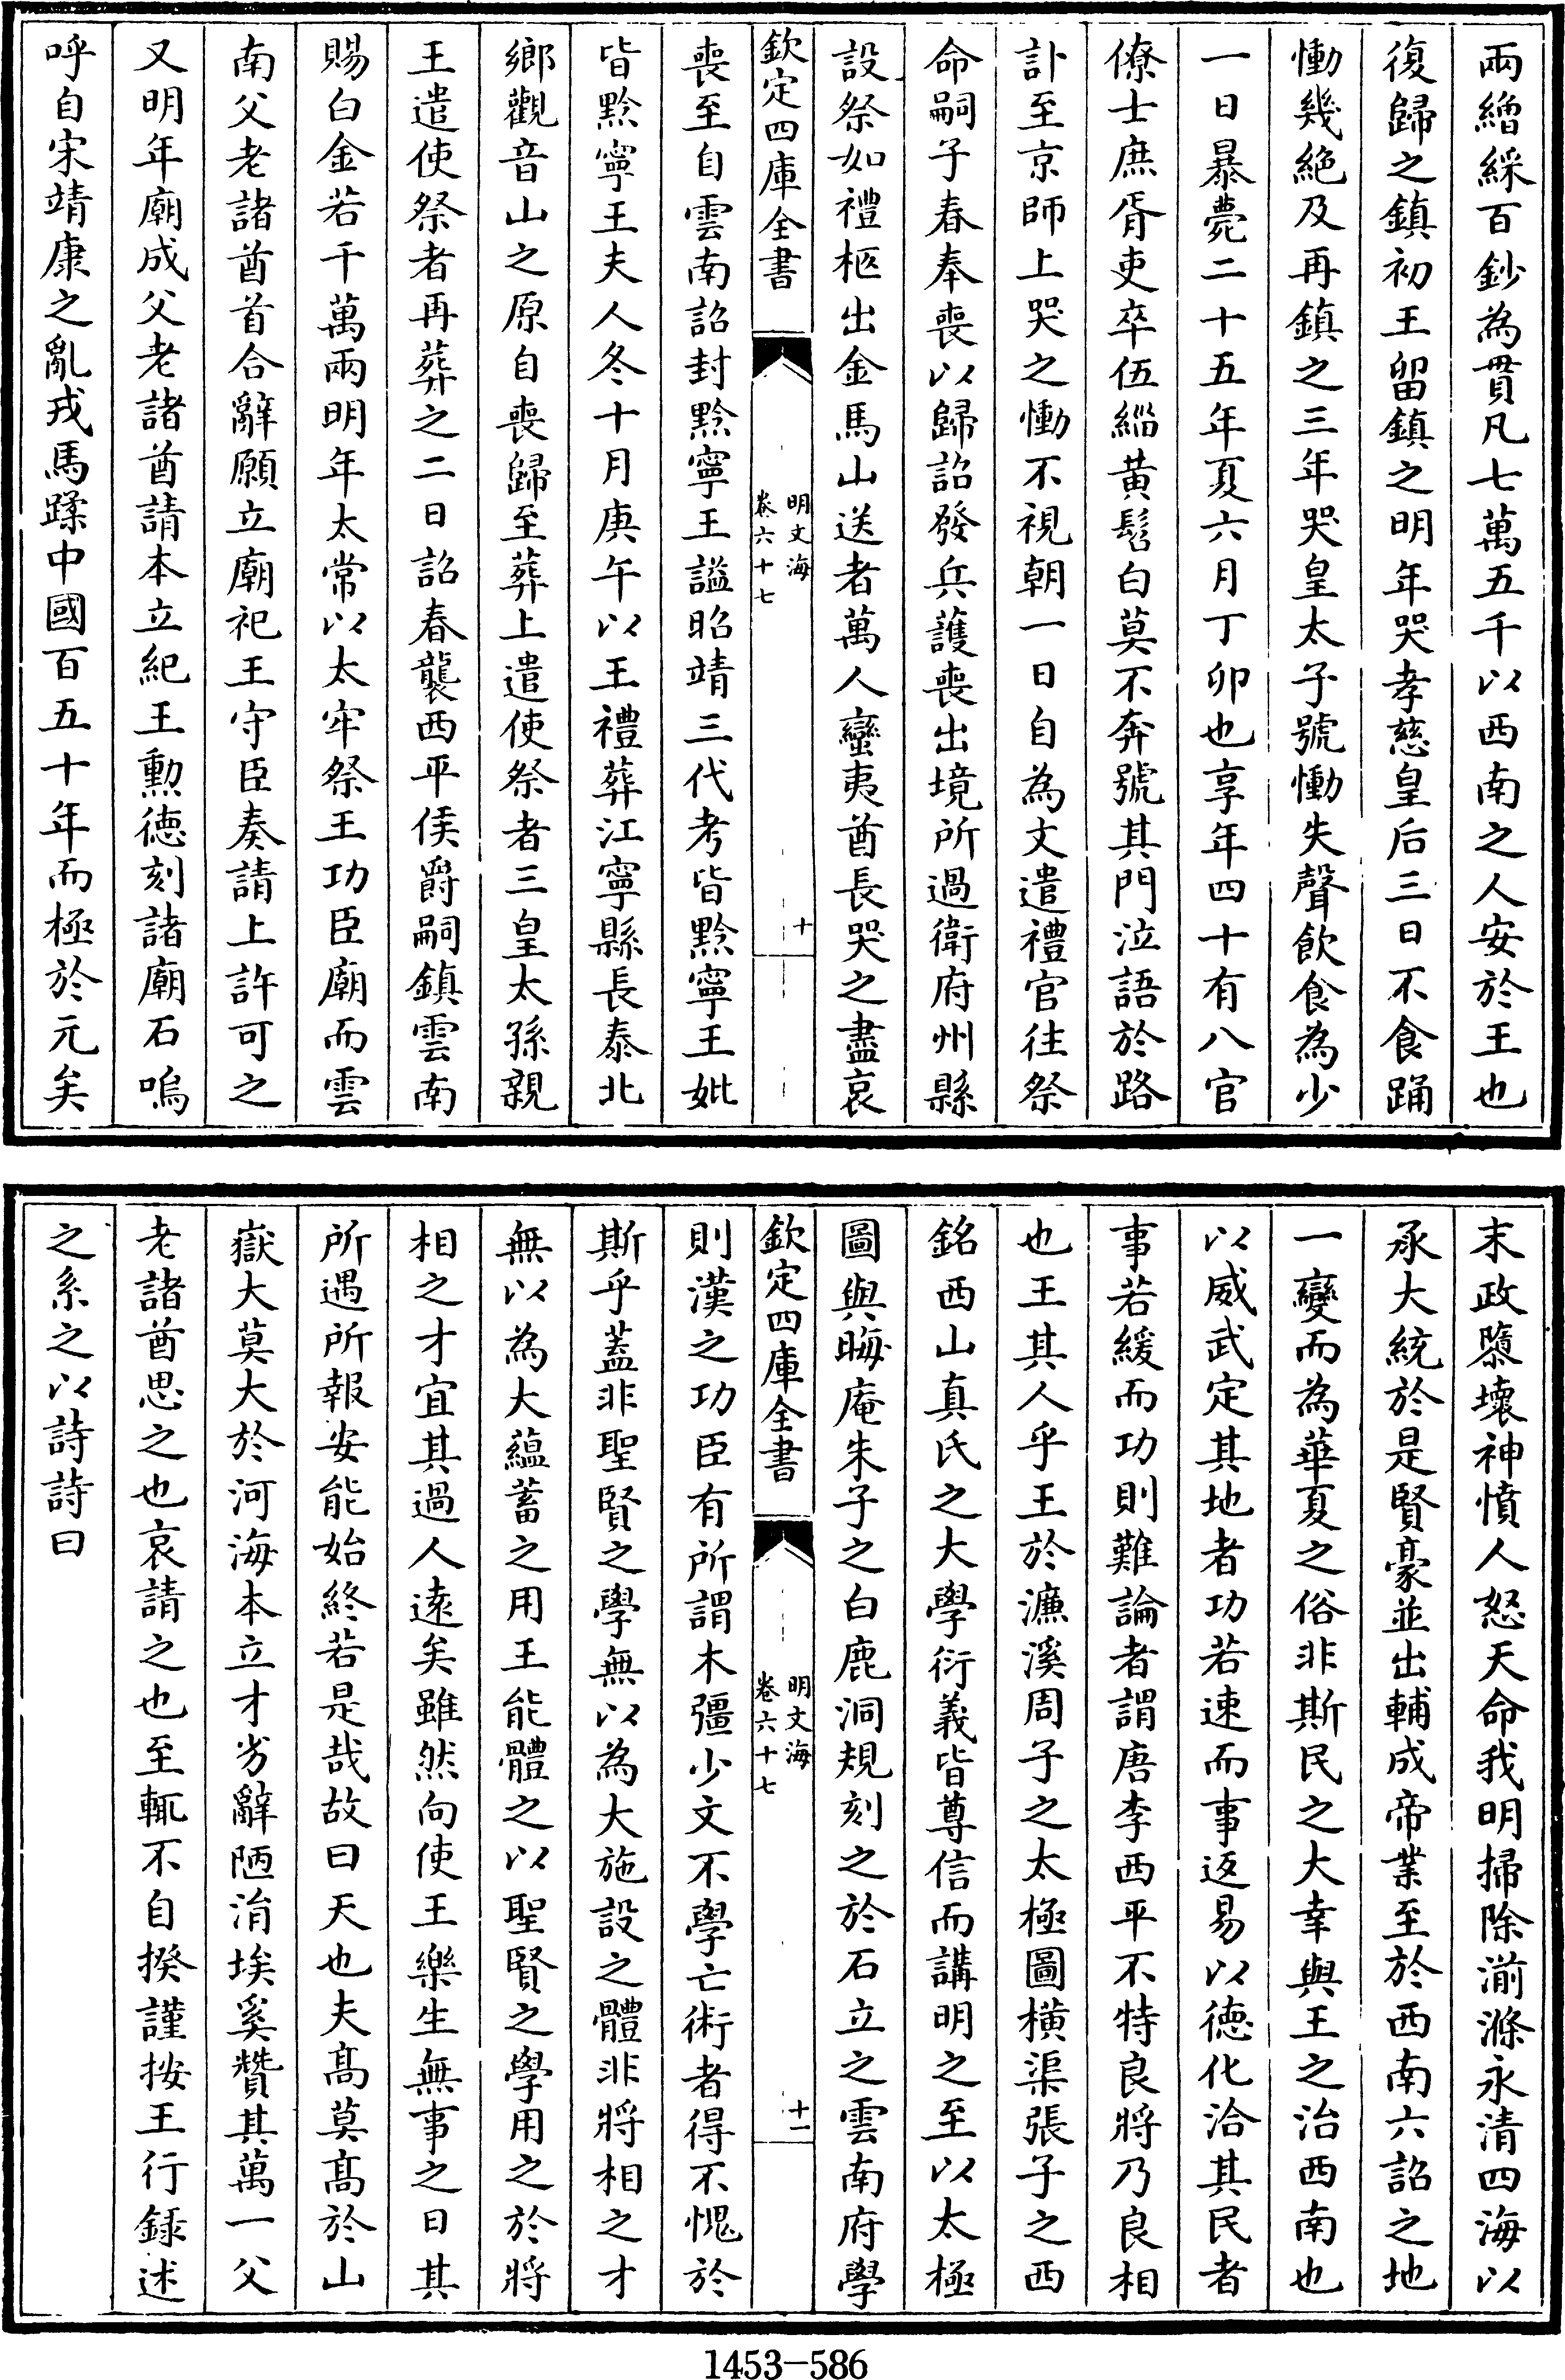 兩繒綵百鈔為貫凡七萬五千以西南之人安於王也
復歸之鎮初王留鎮之明年哭孝慈皇后三日不食踊
慟幾絶及再鎮之三年哭皇太子號慟失聲飲食為少
一日暴薨二十五年夏六月丁卯也享年四十有八官
僚士庶胥吏卒伍緇黄髫白莫不奔號其門泣語於路
訃至京師上哭之慟不視朝一日自為文遣禮官往祭
命嗣子春奉喪以歸詔發兵護喪出境所過衛府州縣
設祭如禮柩出金馬山送者萬人蠻夷酋長哭之盡哀
欽定四庫全書
明文海
卷六十七
十
喪至自雲南詔封黔寧王諡昭靖三代考皆黔寧王妣
皆黔寧王夫人冬十月庚午以王禮葬江寧縣長泰北
鄉觀音山之原自喪歸至葬上遣使祭者三皇太孫親
王遣使祭者再葬之二日詔春襲西平侯爵嗣鎮雲南
賜白金若干萬兩明年太常以太牢祭王功臣廟而雲
南父老諸酋首合辭願立廟祀王守臣奏請上許可之
又明年廟成父老諸酋請本立紀王勳徳刻諸廟石嗚
呼自宋靖康之亂戎馬蹂中國百五十年而極於元矣
末政隳壞神憤人怒天命我明掃除湔滌永清四海以
承大統於是賢豪並出輔成帝業至於西南六詔之地
一變而為華夏之俗非斯民之大幸與王之治西南也
以威武定其地者功若速而事返易以徳化洽其民者
事若緩而功則難論者謂唐李西平不特良將乃良相
也王其人乎王於濂溪周子之太極圖橫渠張子之西
銘西山真氏之大學衍義皆尊信而講明之至以太極
圖與晦庵朱子之白鹿洞規刻之於石立之雲南府學
欽定四庫全書
明文海
卷六十七
十一
則漢之功臣有所謂木彊少文不學亡術者得不愧於
斯乎蓋非聖賢之學無以為大施設之體非將相之才
無以為大蘊蓄之用王能體之以聖賢之學用之於將
相之才宜其過人遠矣雖然向使王樂生無事之日其
所遇所報安能始終若是哉故曰天也夫髙莫髙於山
嶽大莫大於河海本立才劣辭陋涓埃奚贊其萬一父
老諸酋思之也哀請之也至輒不自揆謹按王行錄述
之系之以詩詩曰
1453-586